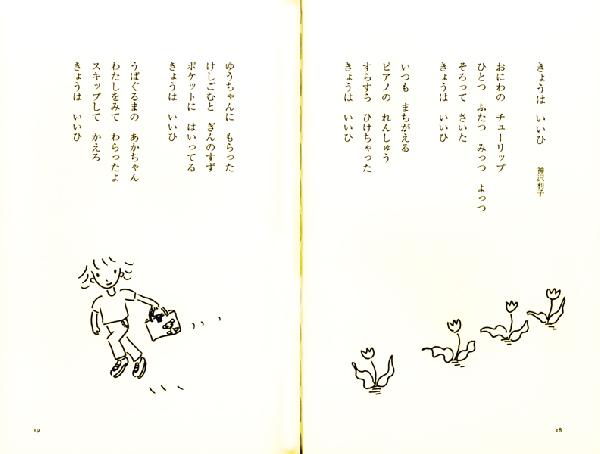 きょうは いいひ
おにわの チューリップ
ひとつ ふたつ みっつ よっつ
そろって さいた
きょうは いいひ
いつも まちがえる
ピアノの れんしゅう
すらすら ひけちゃった
きょうは いいひ
ゆうちゃんに もらった
けしごむと ぎんのすず
ポケットに はいってる
きょうは いいひ
うばぐるまの あかちゃん
わたしをみて わらったよ
スキップして かえろ
きょうは いいひ
18
19